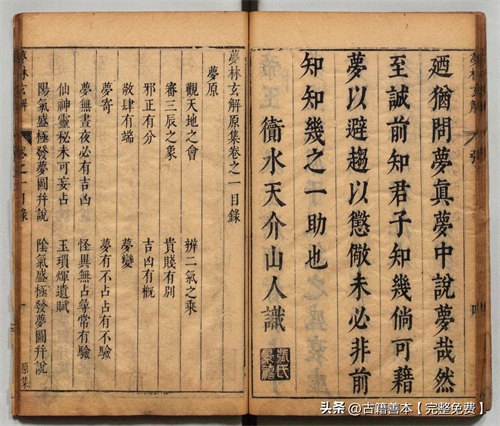 廼猶問夢眞夢中說夢哉然
至誠前知君子知幾倘可藉
夢以避趨以懲儆未必非前
知知幾之一助也
衛水天介山人識
夢林玄解原集卷之一目錄
夢原
觀天地之會　辨二氣之乘
審三辰之象　貴賤有別
邪正有分　吉凶有概
敬肆有端　夢變
夢寄　夢有不占占有不驗
夢無晝夜必有吉凶　怪異無占尋常有驗
仙神靈秘未可妄占　玉瑣煇遺賦
陽氣盛極發夢圖幷說　陰氣盛極發夢圖幷說
夢林玄解　卷之一目錄　一　原集
头条 @古籍善本【完整免费】